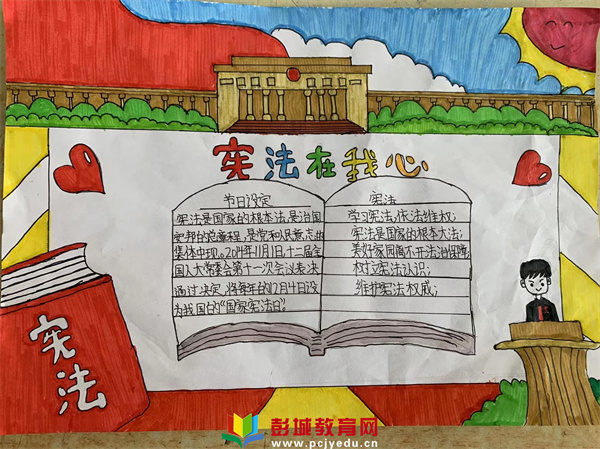 宪法在我心
节日设定
宪法是国家的根本法,是治国
安邦的总章程,是党和人民意志的
集体中现。2014年11月1日,十二届全
国人大常委会第十一次会议表决
通过决定,将每年的12月4日设
为我国的“国家宪法日”。
宪法
学习宪法,依法维权;
宪法是国家的根本大法;
美好家园离不开法治保障;
树立宪法认识;
维护宪法权威;
宪法
彭城教育网
www.pcjyedu.cn